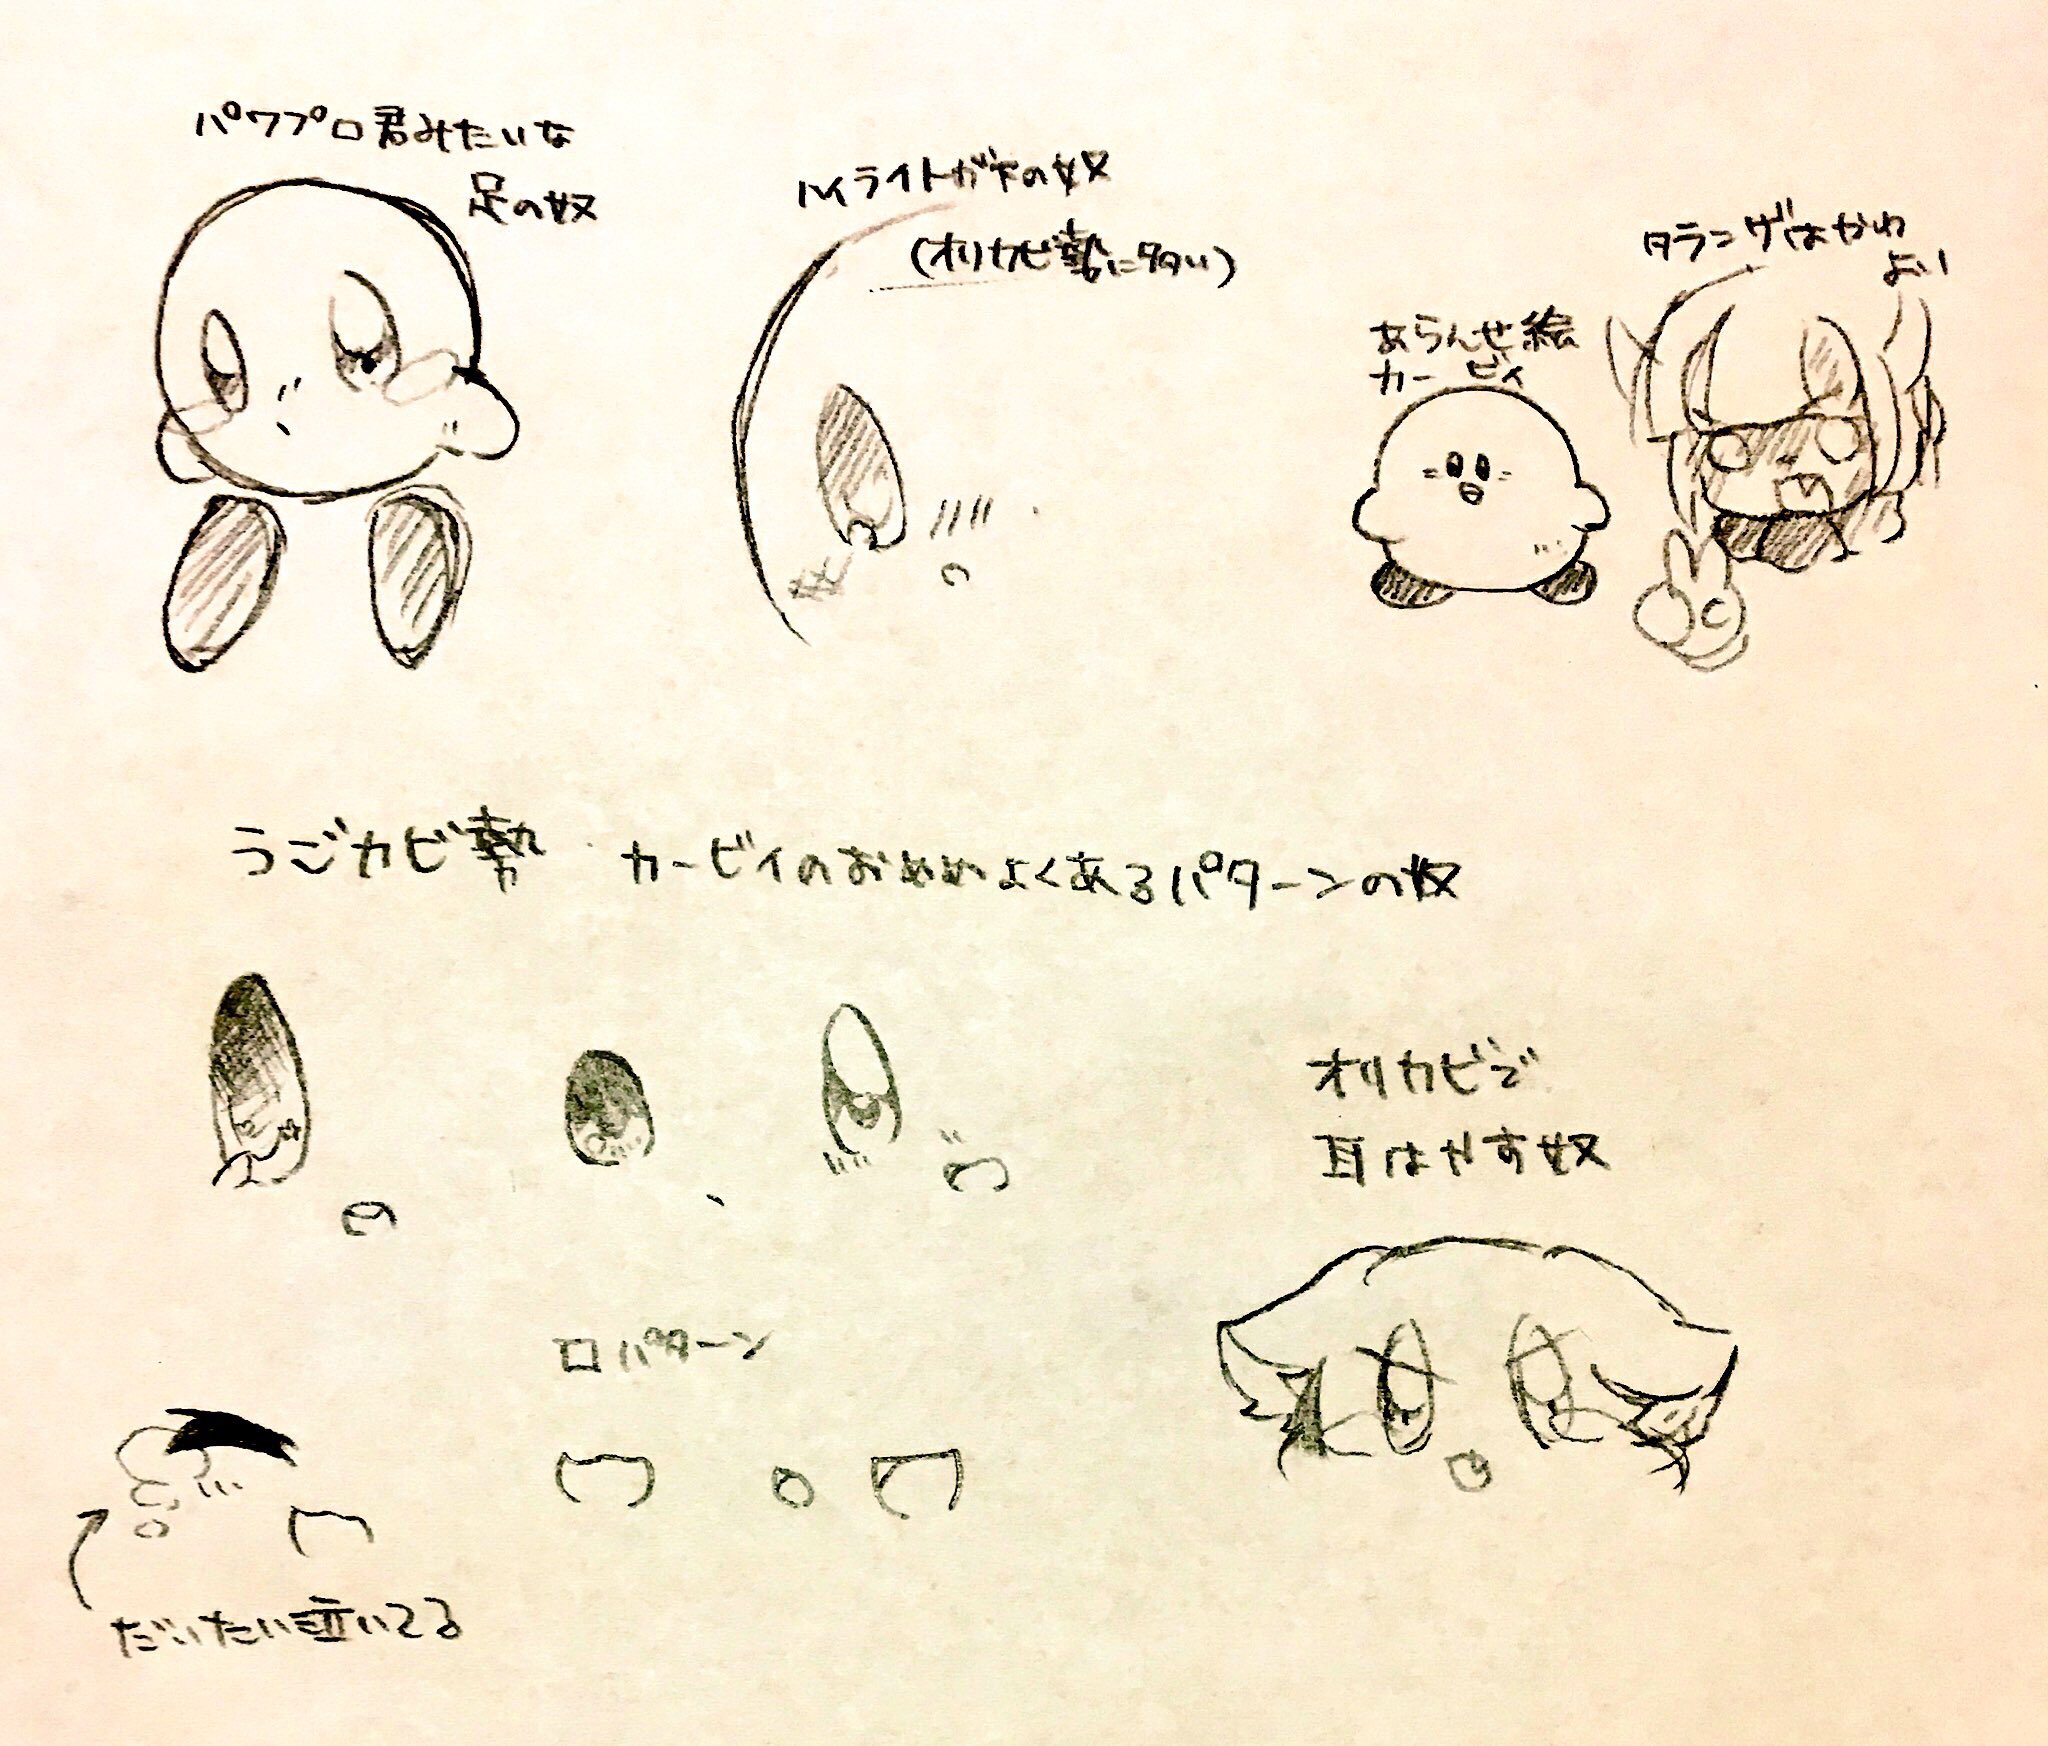 パワプロ君みたいな
足の奴
ハイライトガチの奴
(オリカビ勢に多い)
タランザはかわ
よい
あらんせ絵
カービィ
うごカビ勢 カービィのおめめよくあるパターンの奴
オリカビで
耳はやす奴
口パターン
だいたい泣いてる